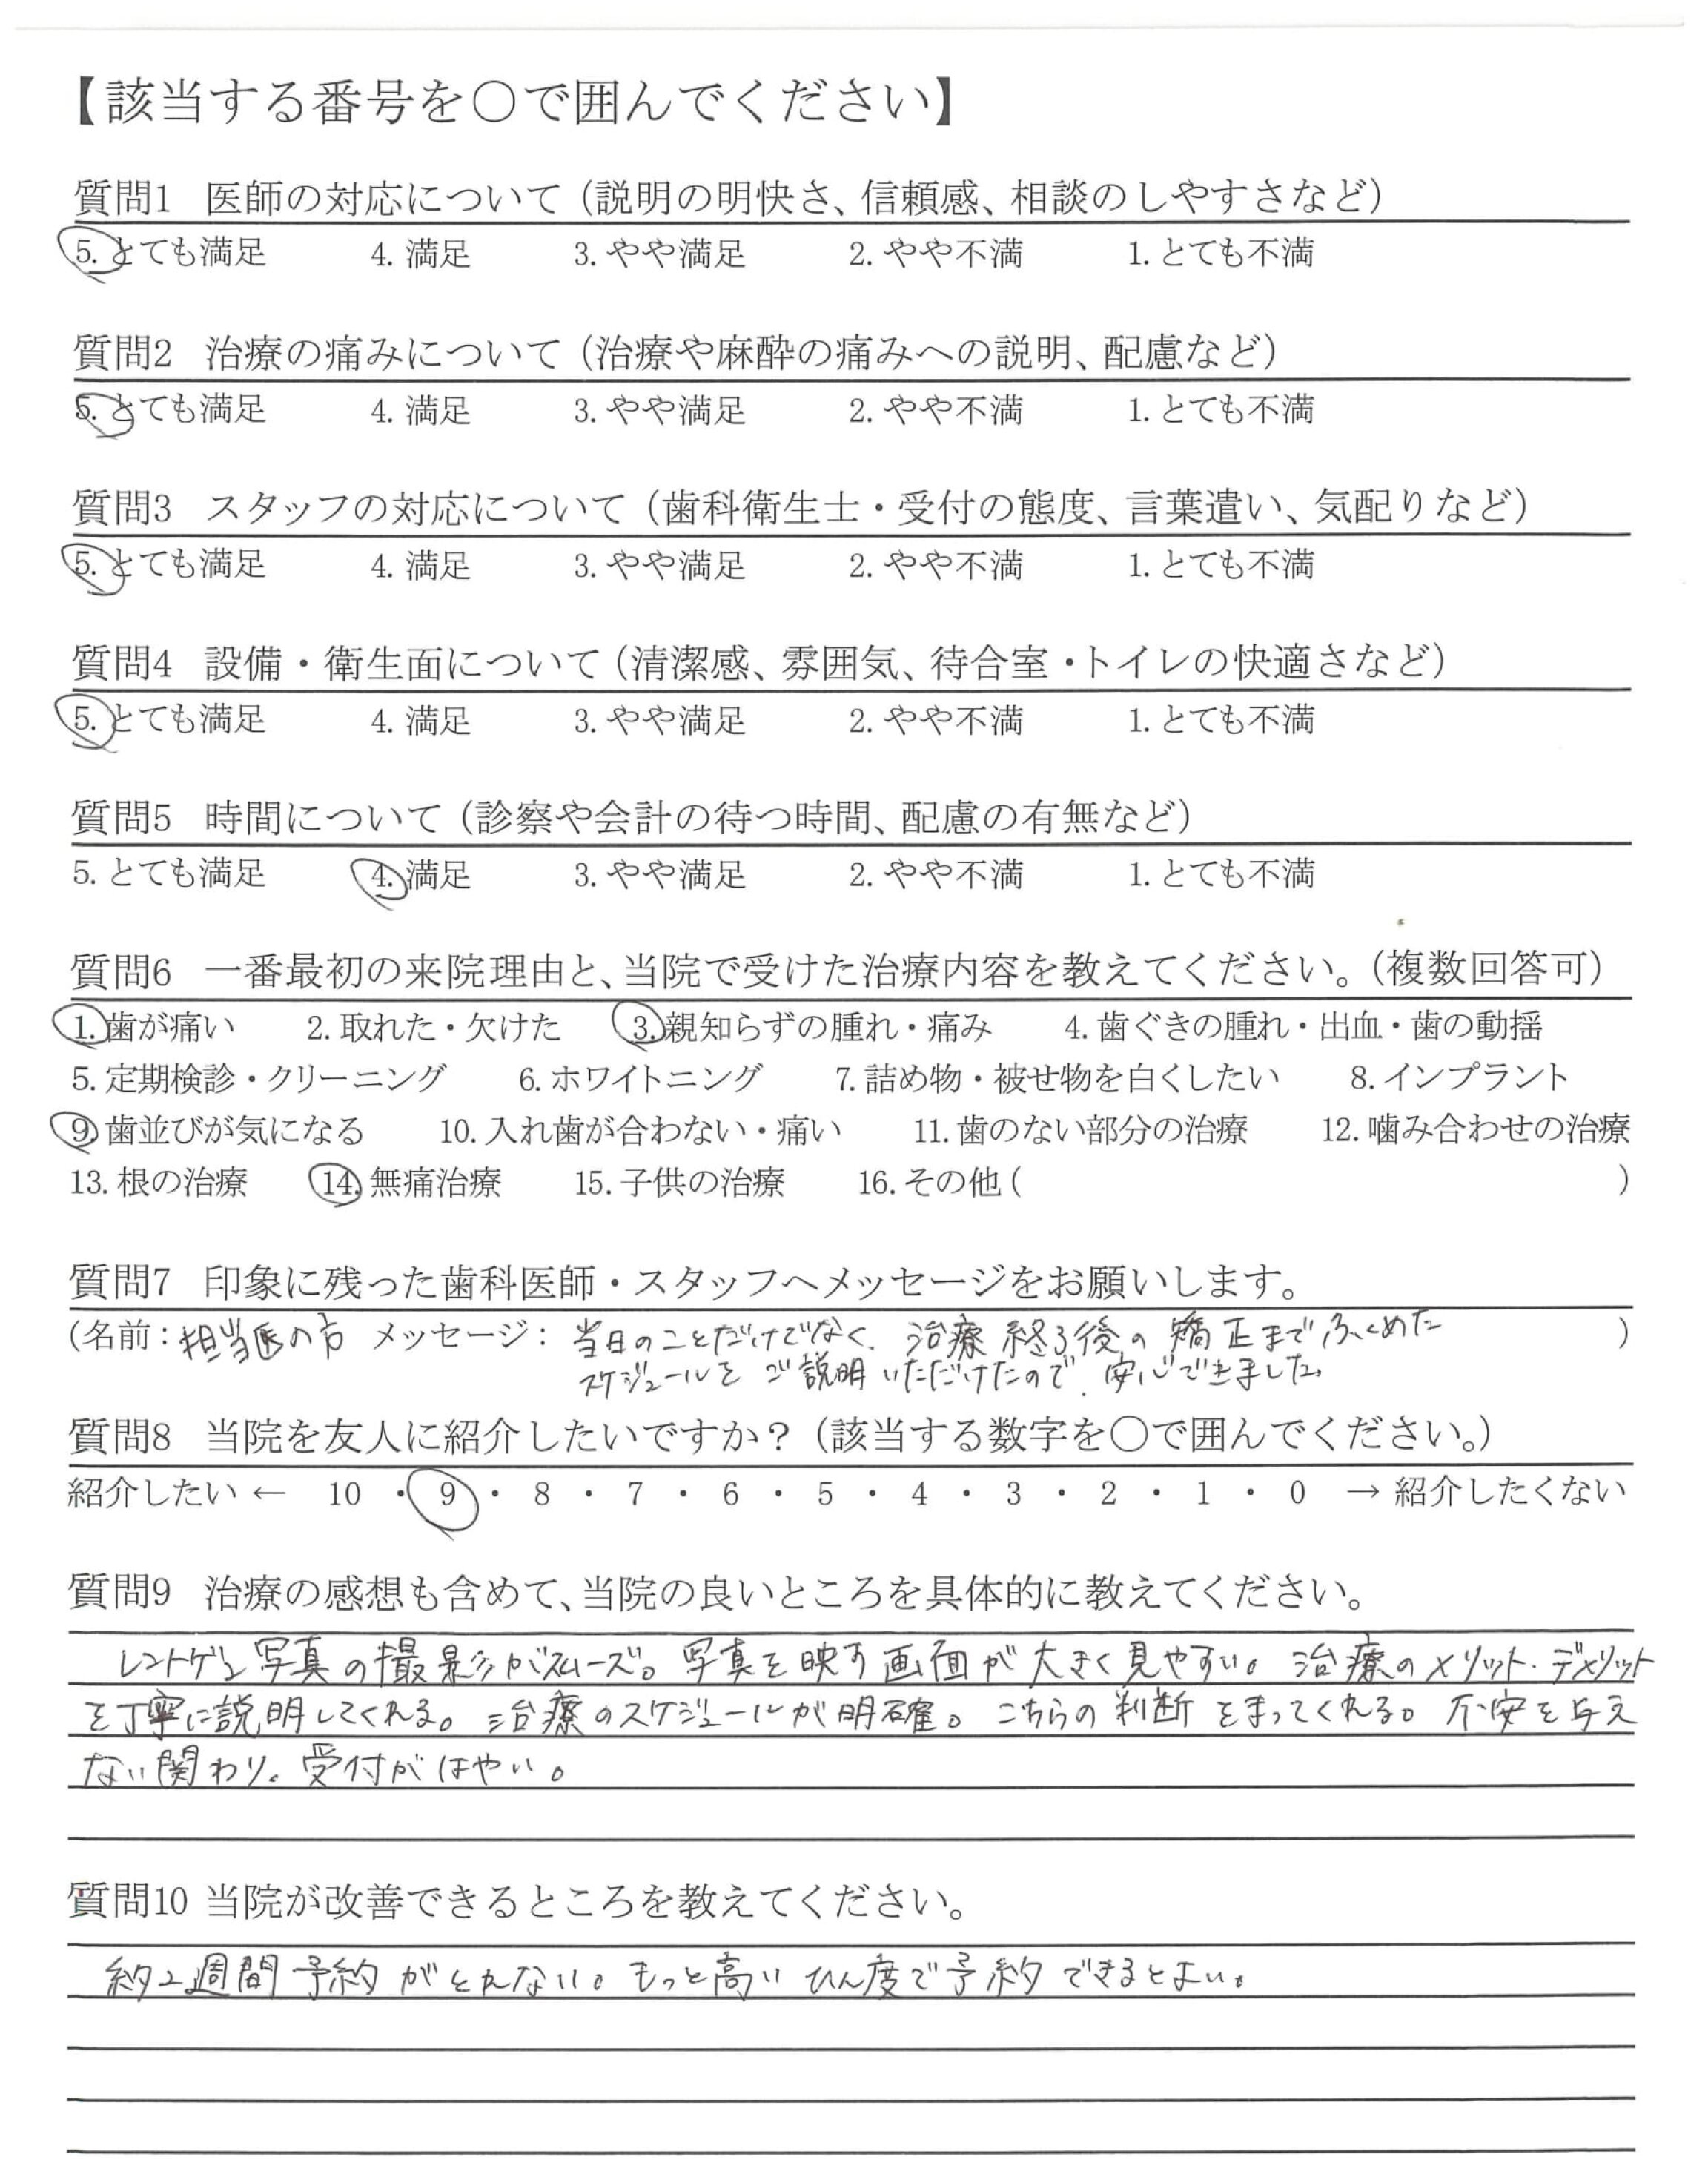 【該当する番号を〇で囲んでください】
質問1 医師の対応について（説明の明快さ、信頼感、相談のしやすさなど）
5. とても満足 4. 満足 3. やや満足 2. やや不満 1. とても不満
質問2 治療の痛みについて（治療や麻酔の痛みへの説明、配慮など）
5. とても満足 4. 満足 3. やや満足 2. やや不満 1. とても不満
質問3 スタッフの対応について（歯科衛生士・受付の態度、言葉遣い、気配りなど）
5. とても満足 4. 満足 3. やや満足 2. やや不満 1. とても不満
質問4 設備・衛生面について（清潔感、雰囲気、待合室・トイレの快適さなど）
5. とても満足 4. 満足 3. やや満足 2. やや不満 1. とても不満
質問5 時間について（診察や会計の待つ時間、配慮の有無など）
5. とても満足 4. 満足 3. やや満足 2. やや不満 1. とても不満
質問6 一番最初の来院理由と、当院で受けた治療内容を教えてください。（複数回答可）
1. 歯が痛い 2. 取れた・欠けた 3. 親知らずの腫れ・痛み 4. 歯ぐきの腫れ・出血・歯の動揺
5. 定期検診・クリーニング 6. ホワイトニング 7. 詰め物・被せ物を白くしたい 8. インプラント
9. 歯並びが気になる 10. 入れ歯が合わない・痛い 11. 歯のない部分の治療 12. 噛み合わせの治療
13. 根の治療 14. 無痛治療 15. 子供の治療 16. その他（ ）
質問7 印象に残った歯科医師・スタッフへメッセージをお願いします。
（名前：担当医の方 メッセージ：当日のことだけでなく、治療終了後の矯正までふくめた ）
スケジュールをご説明いただけたので、安心できました。
質問8 当院を友人に紹介したいですか？（該当する数字を〇で囲んでください。）
紹介したい ← 10 ・ 9 ・ 8 ・ 7 ・ 6 ・ 5 ・ 4 ・ 3 ・ 2 ・ 1 ・ 0 → 紹介したくない
質問9 治療の感想も含めて、当院の良いところを具体的に教えてください。
レントゲン写真の撮影がスムーズ。写真を映す画面が大きく見やすい。治療のメリット・デメリット
を丁寧に説明してくれる。治療のスケジュールが明確。こちらの判断をまってくれる。不安を与え
ない関わり。受付がはやい。
質問10 当院が改善できるところを教えてください。
約2週間予約がとれない。もっと高いひん度で予約できるとよい。